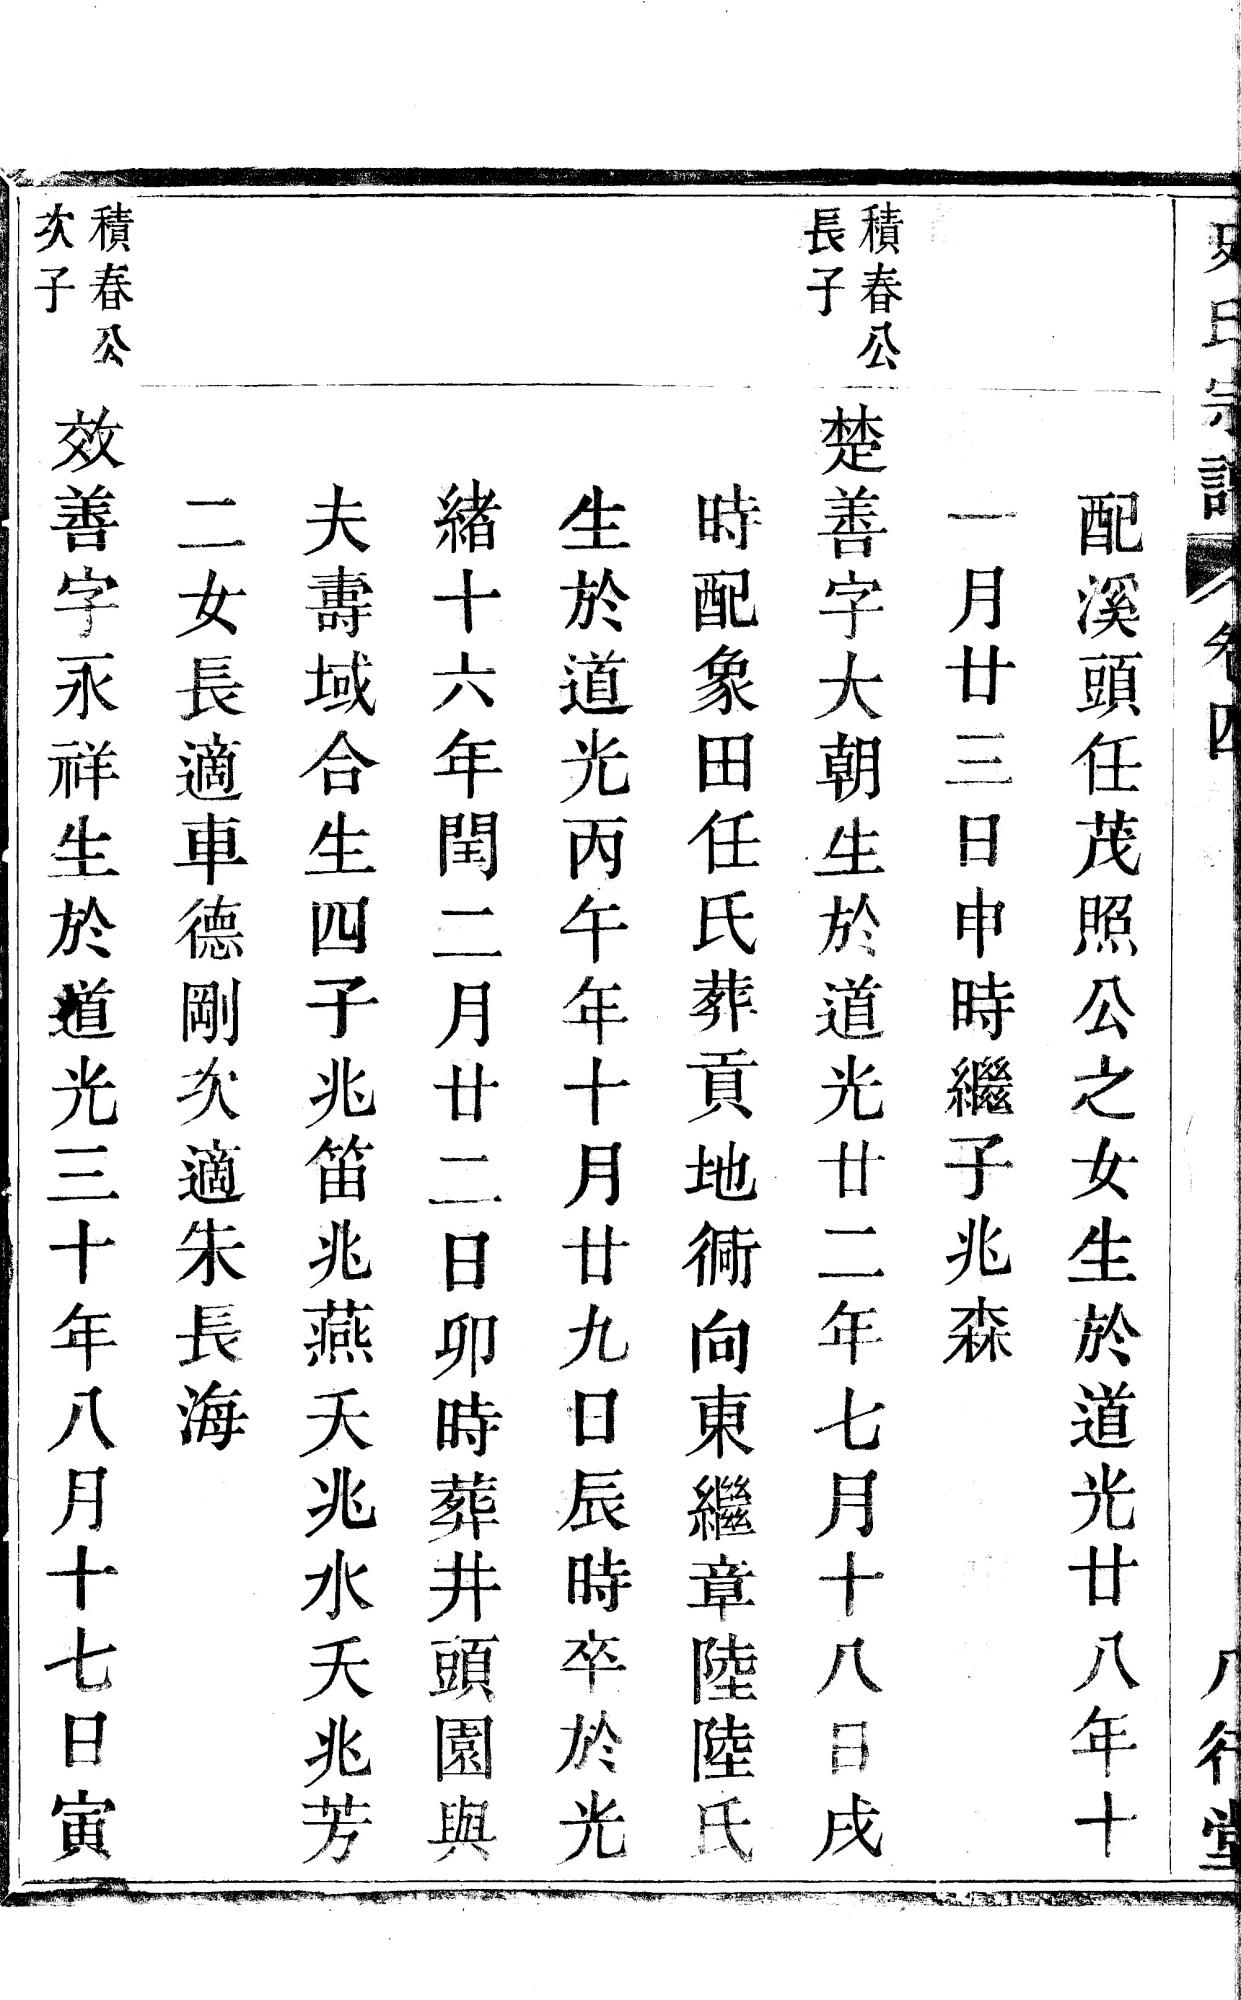 史氏宗譜
卷四
八行堂
配溪頭任茂照公之女生於道光廿八年十
一月廿三日申時繼子兆森
積春公
長子
楚善字大朝生於道光廿二年七月十八日戌
時配象田任氏葬貢地衕向東繼章陸陸氏
生於道光丙午年十月廿九日辰時卒於光
緒十六年閏二月廿二日卯時葬井頭園與
夫壽域合生四子兆笛兆燕夭兆水夭兆芳
二女長適車德剛次適朱長海
積春公
次子
效善字永祥生於道光三十年八月十七日寅